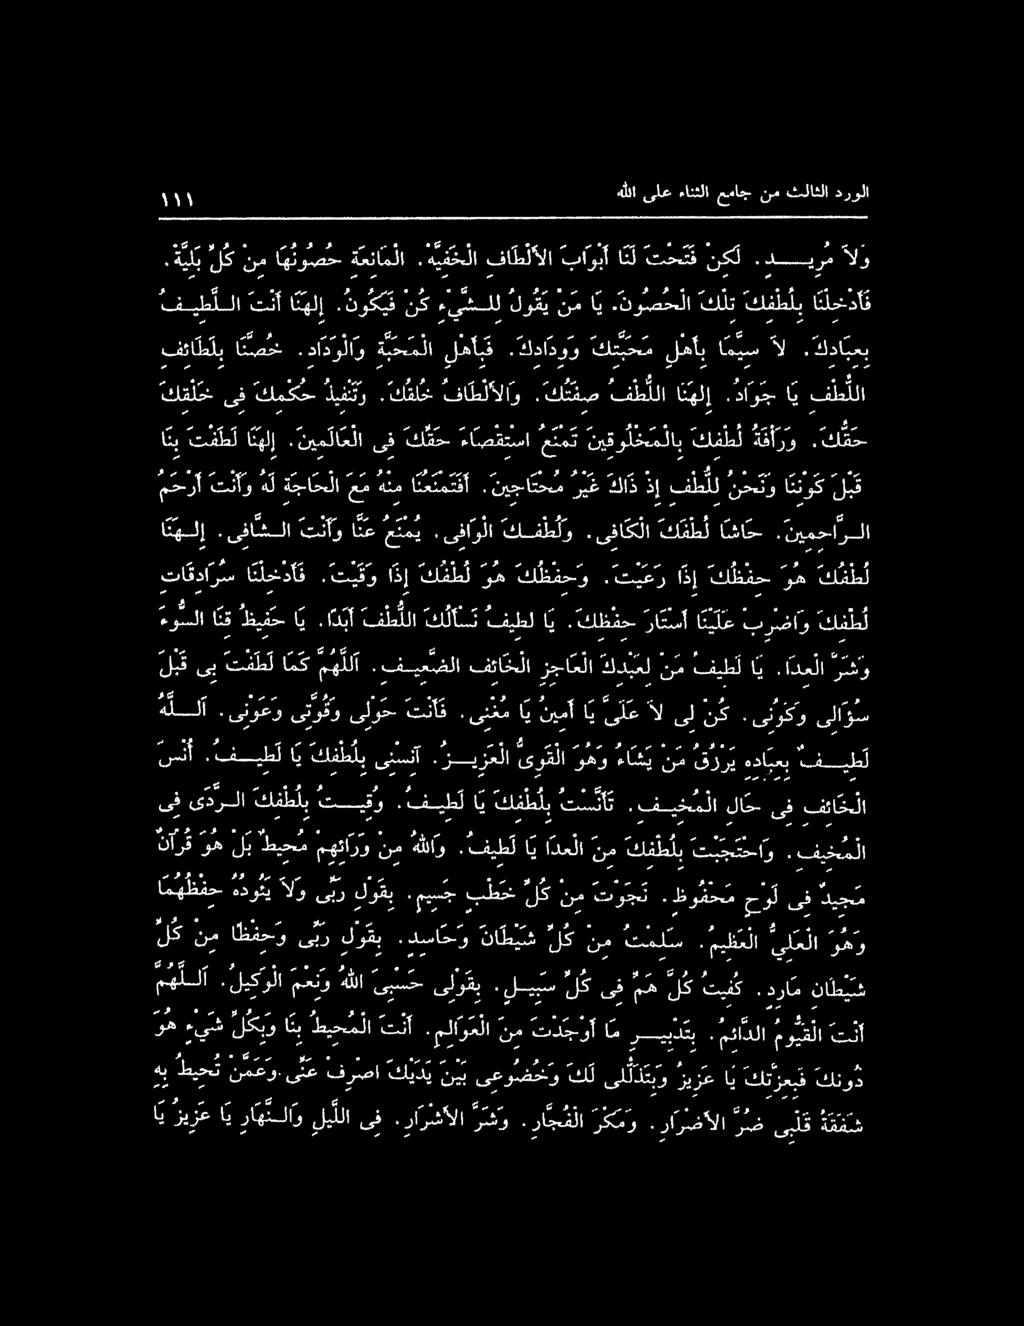 الورد الثالث من جامع الثناء على الله ١١١
وَلاَ مُرِيــدٍ. لَكِنْ فَتَحْتَ لَنَا أَبْوَابَ الاَلْطَافِ الْخَفِيَّهْ. الْمَانِعَةِ حُصُونُهَا مِنْ كُلِّ بَلِيَّة.
فَاَدْخِلْنَا بِلُطْفِكَ تِلْكَ الْحُصُونَ. يَا مَنْ يَقُولُ لِلــشَّيْءِ كُنْ فَيَكُونُ. إِلهَنَا أَنْتَ الــلَّطِيــفُ
بِعِبَادِكَ. لاَ سِيَّمَا بِاَهْلِ مَحَبَّتِكَ وَوِدَادِكَ. فَبِاَهْلِ الْمَحَبَّةِ وَالْوِدَادِ. خُصَّنَا بِلَطَائِفِ
اللُّطْفِ يَا جَوَادُ. إِلهَنَا اللُّطْفُ صِفَتُكَ. وَالاَلْطَافُ خُلُقُكَ. وَتَنْفِيذُ حُكْمِكَ فِى خَلْقِكَ
حَقُّكَ. وَرَأْفَةُ لُطْفِكَ بِالْمَخْلُوقِينَ تَمْنَعُ اسْتِقْصَاءَ حَقِّكَ فِى الْعَالَمِينَ. إِلهَنَا لَطَفْتَ بِنَا
قَبْلَ كَوْنِنَا وَنَحْنُ لِلُّطْفِ إِذْ ذَاكَ غَيْرُ مُحْتَاجِينَ. أَفَتَمْنَعُنَا مِنْهُ مَعَ الْحَاجَةِ لَهُ وَأَنْتَ أَرْحَمُ
الــرَّاحِمِينَ. حَاشَا لُطْفِكَ الْكَافِى. وَلُطْفِــكَ الْوَافِى. يُمْنَعُ عَنَّا وَأَنْتَ الــشَّافِى. إِلــهَنَا
لُطْفُكَ هُوَ حِفْظُكَ إِذَا رَعَيْتَ. وَحِفْظُكَ هُوَ لُطْفُكَ إِذَا وَقَيْتَ. فَاَدْخِلْنَا سُرَادِقَاتِ
لُطْفِكَ وَاضْرِبْ عَلَيْنَا أَسْتَارَ حِفْظِكَ. يَا لَطِيفُ نَسْأَلُكَ اللُّطْفَ أَبَدًا. يَا حَفِيظُ قِنَا السُّوءَ
وَشَرَّ الْعِدَا. يَا لَطِيفُ مَنْ لِعَبْدِكَ الْعَاجِزِ الْخَائِفِ الضَّعِيــفِ. اَللَّهُمَّ كَمَا لَطَفْتَ بِى قَبْلَ
سُؤَالِى وَكَوْنِى. كُنْ لِى لاَ عَلَىَّ يَا أَمِينُ يَا مُغْنِى. فَأَنْتَ حَوْلِى وَقُوَّتِى وَعَوْنِى. اَلــلَّهُ
لَطِيــفٌ بِعِبَادِهِ يَرْزُقُ مَنْ يَشَاءُ وَهُوَ الْقَوِىُّ الْعَزِيــزُ. آنِسْنِى بِلُطْفِكَ يَا لَطِيــفُ. أُنْسَ
الْخَائِفِ فِى حَالِ الْمُخِيــفِ. تَأَنَّسْتُ بِلُطْفِكَ يَا لَطِيــفُ. وُقِيــتُ بِلُطْفِكَ الــرَّدَى فِى
الْمُخِيفِ. وَاحْتَجَبْتُ بِلُطْفِكَ مِنَ الْعِدَا يَا لَطِيفُ. وَاللهُ مِنْ وَرَائِهِمْ مُحِيطٌ بَلْ هُوَ قُرْآنٌ
مَجِيدٌ فِى لَوْحٍ مَحْفُوظٍ. نَجَوْتُ مِنْ كُلِّ خَطْبٍ جَسِيمٍ. بِقَوْلِ رَبِّى وَلاَ يَئُودُهُ حِفْظُهُمَا
وَهُوَ الْعَلِيُّ الْعَظِيمُ. سَلِمْتُ مِنْ كُلِّ شَيْطَانٍ وَحَاسِدٍ. بِقَوْلِ رَبِّى وَحِفْظًا مِنْ كُلِّ
شَيْطَانٍ مَارِدٍ. كُفِيتُ كُلَّ هَمٍّ فِى كُلِّ سَبِيــلٍ. بِقَوْلِى حَسْبِىَ اللهُ وَنِعْمَ الْوَكِيلُ. اَلــلَّهُمَّ
أَنْتَ الْقَيُّومُ الدَّائِمُ. بِتَدْبِيــرِ مَا أَوْجَدْتَ مِنَ الْعَوَالِمِ. أَنْتَ الْمُحِيطُ بِنَا وَبِكُلِّ شَيْءٍ هُوَ
دُونَكَ فَبِعِزَّتِكَ يَا عَزِيزُ وَبِتَذَلُّلِى لَكَ وَخُضُوعِى بَيْنَ يَدَيْكَ اصْرِفْ عَنِّى. وَعَمَّنْ تُحِيطُ بِهِ
شَفَقَةُ قَلْبِى ضُرَّ الاَضْرَارِ. وَمَكْرَ الْفُجَّارِ. وَشَرَّ الاَشْرَارِ. فِى اللَّيْلِ وَالــنَّهَارِ يَا عَزِيزُ يَا